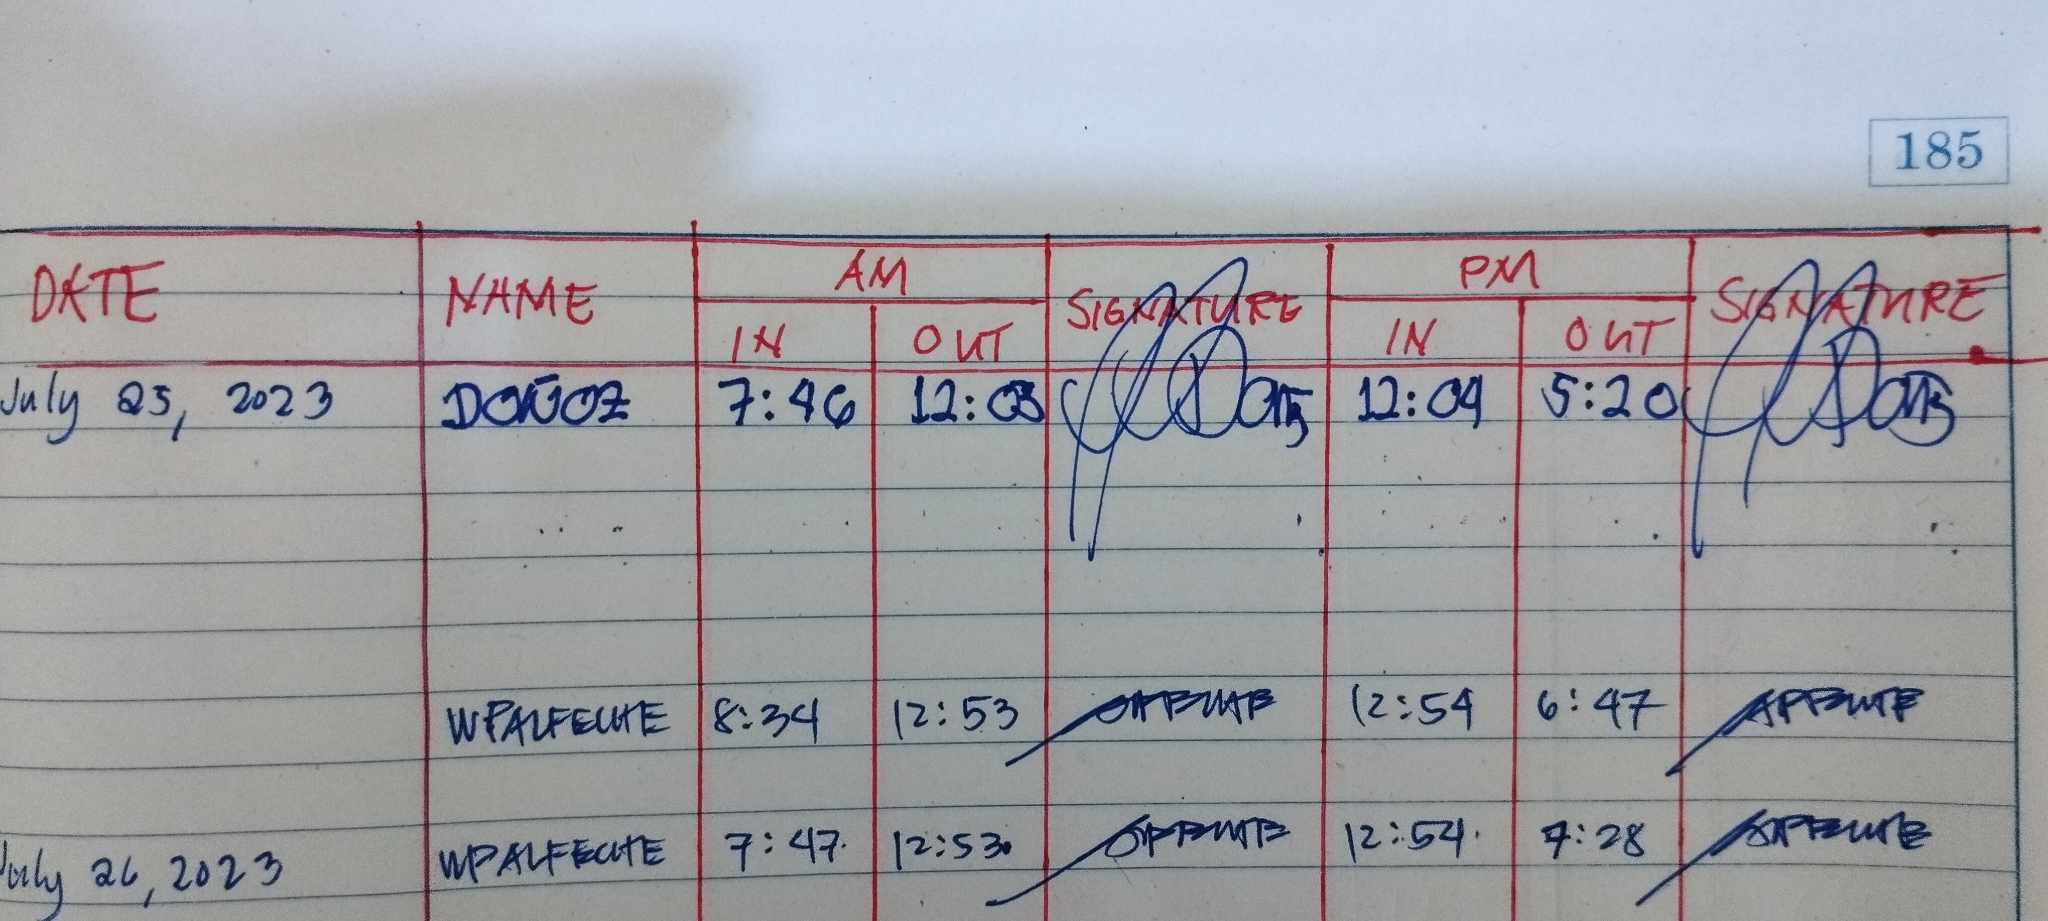 185
DATE NAME AM SIGNATURE PM SIGNATURE
IN OUT IN OUT
July 25, 2023 DOÑOZ 7:46 12:03 12:04 5:20
WPALFECHE 8:34 12:53 12:54 6:47
July 26, 2023 WPALFECHE 7:47 12:53 12:54 7:28